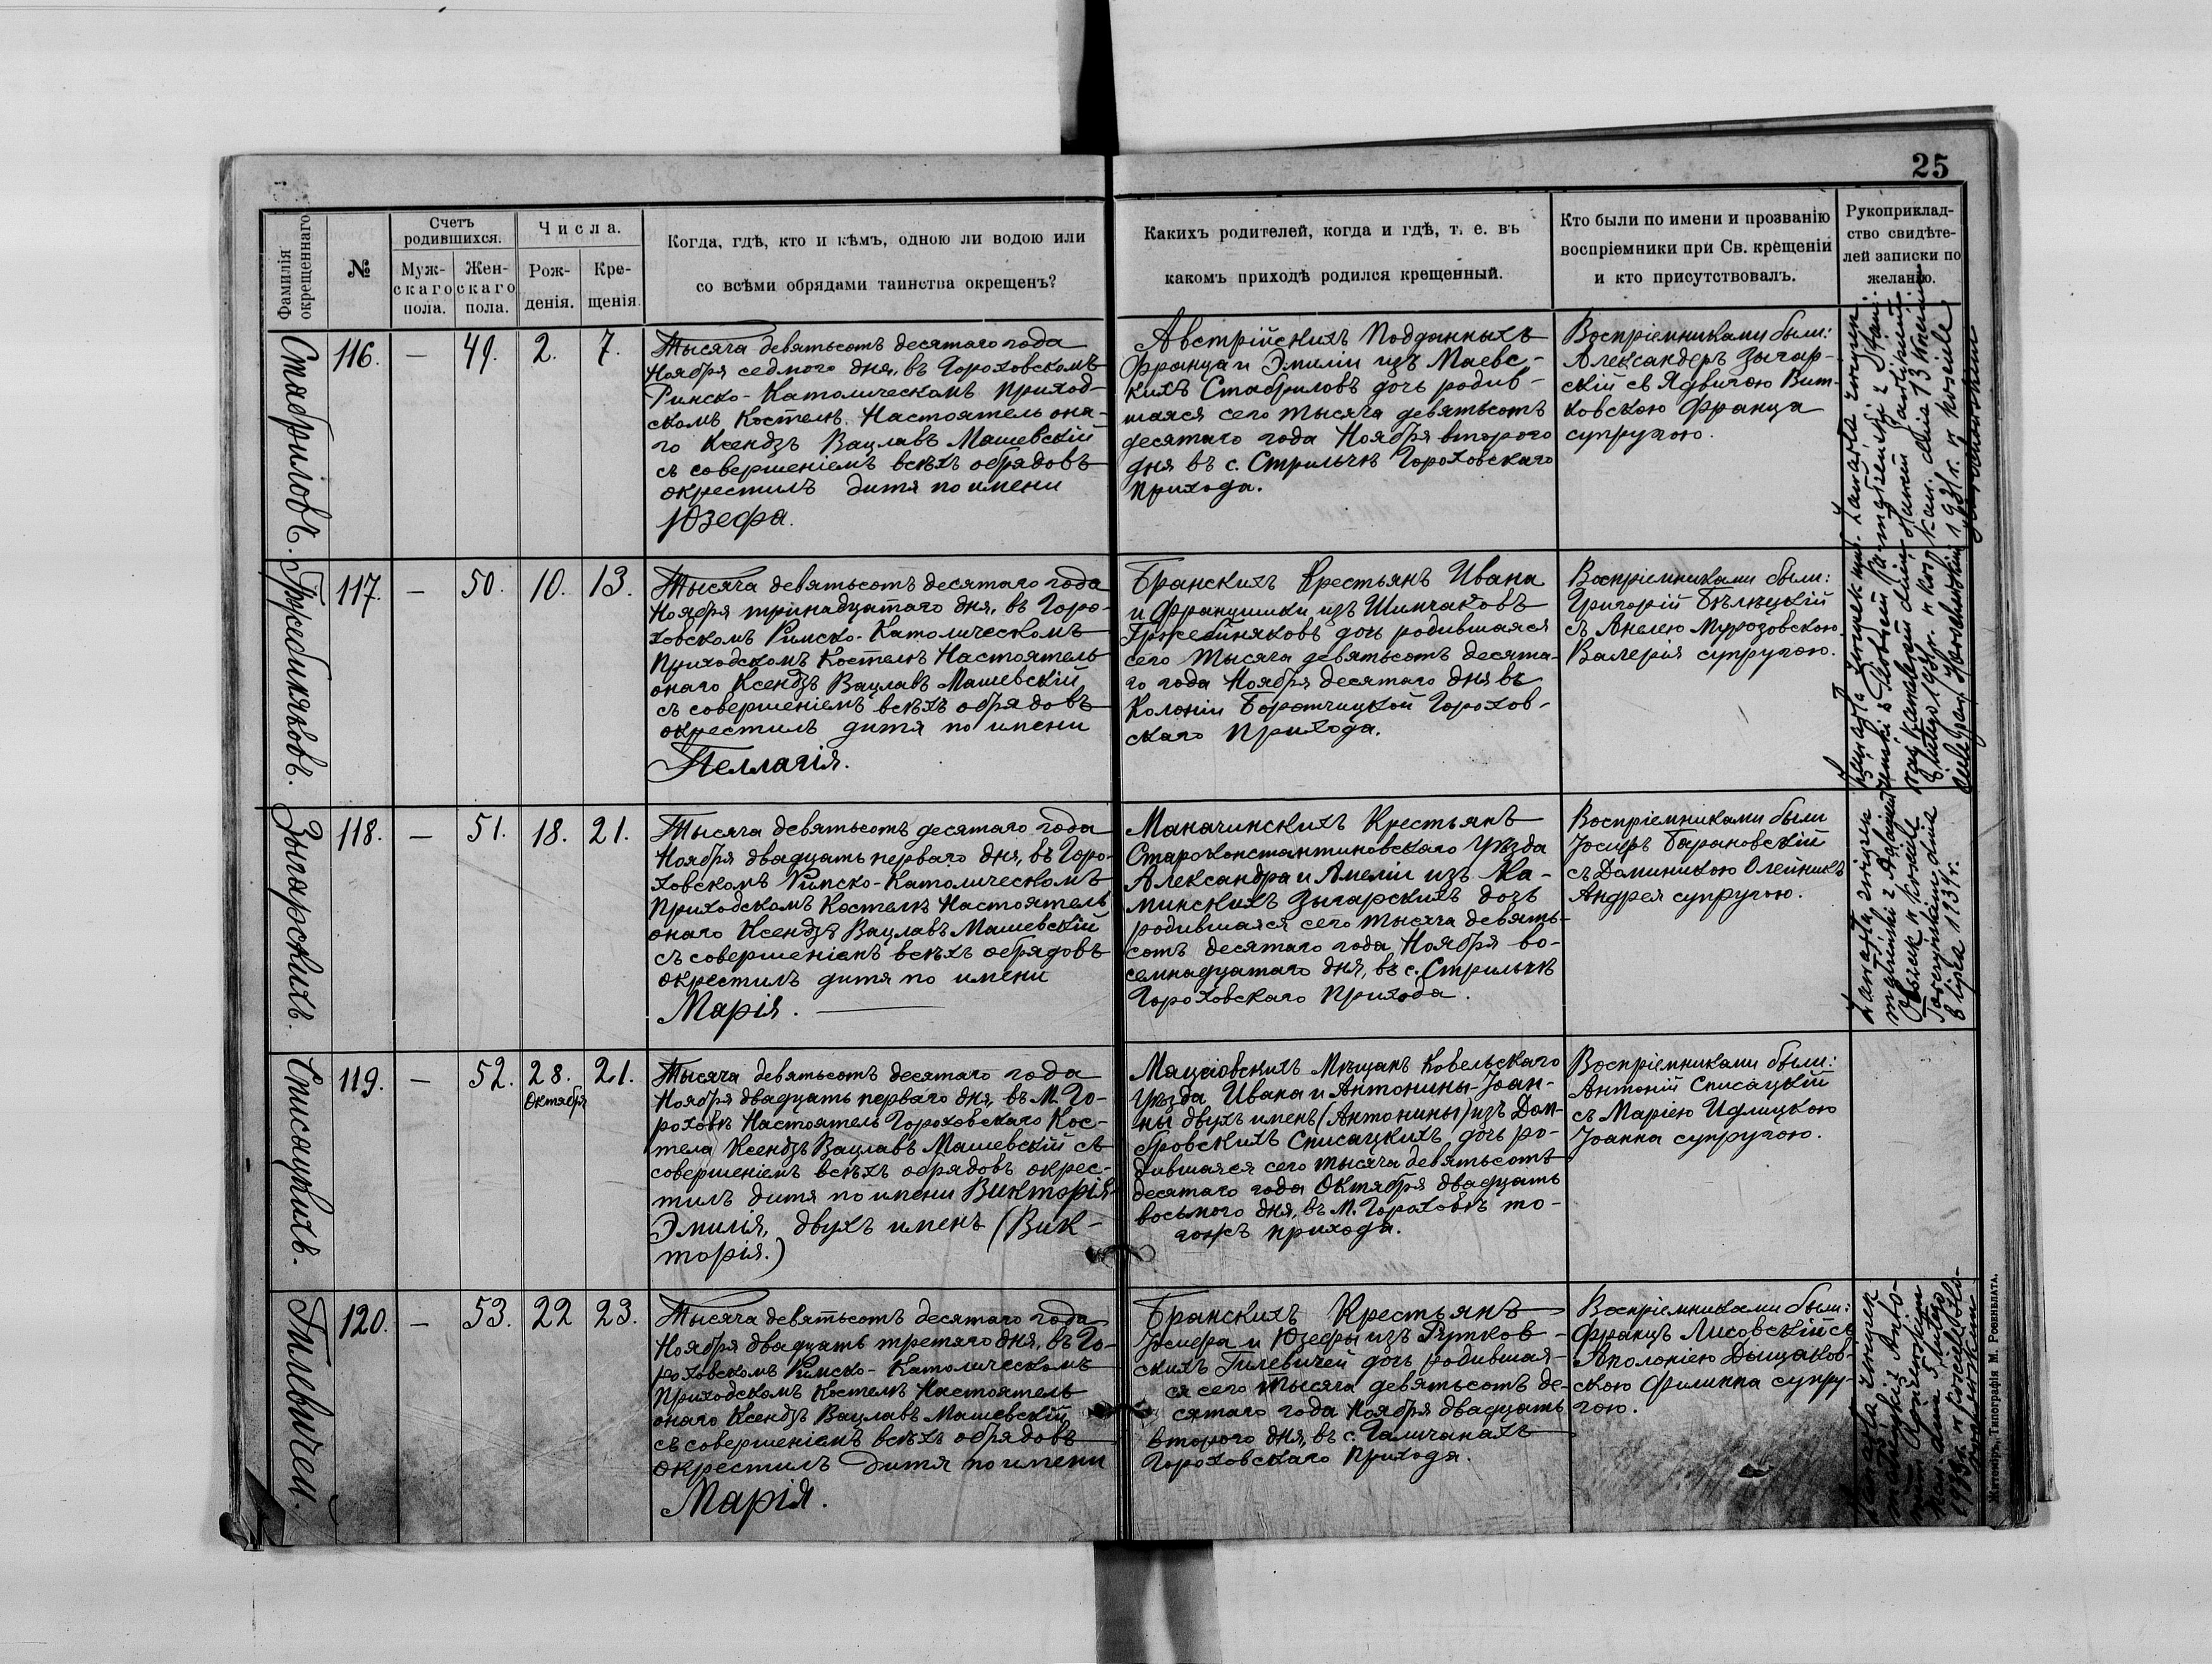 25
Фамилія окрещеннаго
№
Счетъ родившихся.
Мужскаго пола.
Женскаго пола.
Числа.
Рожденія.
Крещенія.
Когда, гдѣ, кто и кѣмъ, одною ли водою или
со всѣми обрядами таинства окрещенъ?
Какихъ родителей, когда и гдѣ, т. е. въ
какомъ приходѣ родился крещенный.
Кто были по имени и прозванію
воспріемники при Св. крещеніи
и кто присутствовалъ.
Рукоприклад-
ство свидѣте-
лей записки по
желанію.
Стабриловъ.
116.
—
49.
2.
7.
Тысяча девятьсотъ десятаго года
Ноября седмого дня, въ Гороховскомъ
Римско-Католическомъ Приход-
скомъ Костелѣ Настоятель она-
го Ксендзъ Вацлавъ Машевскій
съ совершеніемъ всѣхъ обрядовъ
окрестилъ дитя по имени
Юзефа.
Австрійскихъ Подданныхъ
Франца и Эмиліи изъ Маевс-
кихъ Стабриловъ дочь родив-
шаяся сего тысяча девятьсотъ
десятаго года Ноября второго
дня въ с. Стрильчѣ Гороховскаго
прихода.
Воспріемниками были:
Александеръ Зыгар-
скій съ Ядвигою Вит-
ковскою Франца
супругою.
Гржебиняковъ.
117.
—
50.
10.
13.
Тысяча девятьсотъ десятаго года
Ноября тринадцатаго дня, въ Горо-
ховскомъ Римско-Католическомъ
Приходскомъ Костелѣ Настоятель
онаго Ксендзъ Вацлавъ Машевскій
съ совершеніемъ всѣхъ обрядовъ
окрестилъ дитя по имени
Пеллагія.
Бранскихъ Крестьянъ Ивана
и Францишки изъ Шимчаковъ
Гржебиняковъ дочь родившаяся
сего тысяча девятьсотъ десята-
го года Ноября десятаго дня въ
Колоніи Боротчицкой Горохов-
скаго Прихода.
Воспріемниками были:
Григорій Бѣлѣцкій
съ Анелею Мурозовскою
Валерія супругою.
Зыгарскихъ.
118.
—
51.
18.
21.
Тысяча девятьсотъ десятаго года
Ноября двадцать перваго дня, въ Горо-
ховскомъ Римско-Католическомъ
Приходскомъ Костелѣ Настоятель
онаго Ксендзъ Вацлавъ Машевскій
съ совершеніемъ всѣхъ обрядовъ
окрестилъ дитя по имени
Марія.
Маначинскихъ Крестьянъ
Староконстантиновскаго Уѣзда
Александра и Амеліи изъ Ка-
минскихъ Зыгарскихъ дочь
родившаяся сего тысяча девять-
сотъ десятаго года Ноября во-
семнадцатаго дня, въ с. Стрильчѣ
Гороховскаго Прихода.
Воспріемниками были
Іосифъ Барановскій
съ Доминикою Олейникъ
Андрея супругою.
Списацкихъ.
119.
—
52.
28.
Октября
21.
Тысяча девятьсотъ десятаго года
Ноября двадцать перваго дня, въ М. Го-
роховѣ Настоятель Гороховскаго Кос-
тела Ксендзъ Вацлавъ Машевскій съ
совершеніемъ всѣхъ обрядовъ окрес-
тилъ дитя по имени Викторія
Эмилія, двухъ именъ (Вик-
торія.)
Мацѣіовскихъ Мѣщанъ Ковельскаго
Уѣзда Ивана и Антонины-Іоан-
ны двухъ именъ (Антонины) изъ Дом-
бровскихъ Списацкихъ дочь ро-
дившаяся сего тысяча девятьсотъ
десятаго года Октября двадцать
восьмого дня, въ М. Гороховѣ то-
гожъ прихода.
Воспріемниками были:
Антоній Списацкій
съ Маріею Ифлицкою
Іоанна супругою.
Гилевичей.
120.
—
53.
22
23.
Тысяча девятьсотъ десятаго года
Ноября двадцать третяго дня, въ Го-
роховскомъ Римско-Католическомъ
Приходскомъ Костелѣ Настоятель
онаго Ксендзъ Вацлавъ Машевскій
съ совершеніемъ всѣхъ обрядовъ
окрестилъ дитя по имени
Марія.
Бранскихъ Крестьянъ
Іосифа и Юзефы изъ Рутков-
скихъ Гилевичей дочь родившая-
ся сего тысяча девятьсотъ де-
сятаго года Ноября двадцать
второго дня, въ с. Галичанахъ
Гороховскаго Прихода.
Воспріемниками были:
Францъ Лисовскій съ
Аполоніею Дыщаков-
скою Филиппа супру-
гою.
Zawarła związek
małżeński z
Житоміръ, Типографія М. Розенблата.